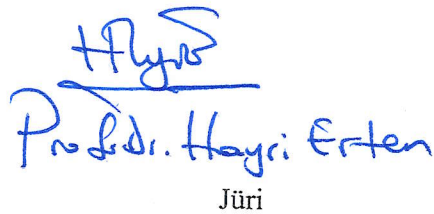 Prof. Dr. Hayri Erten
Jüri